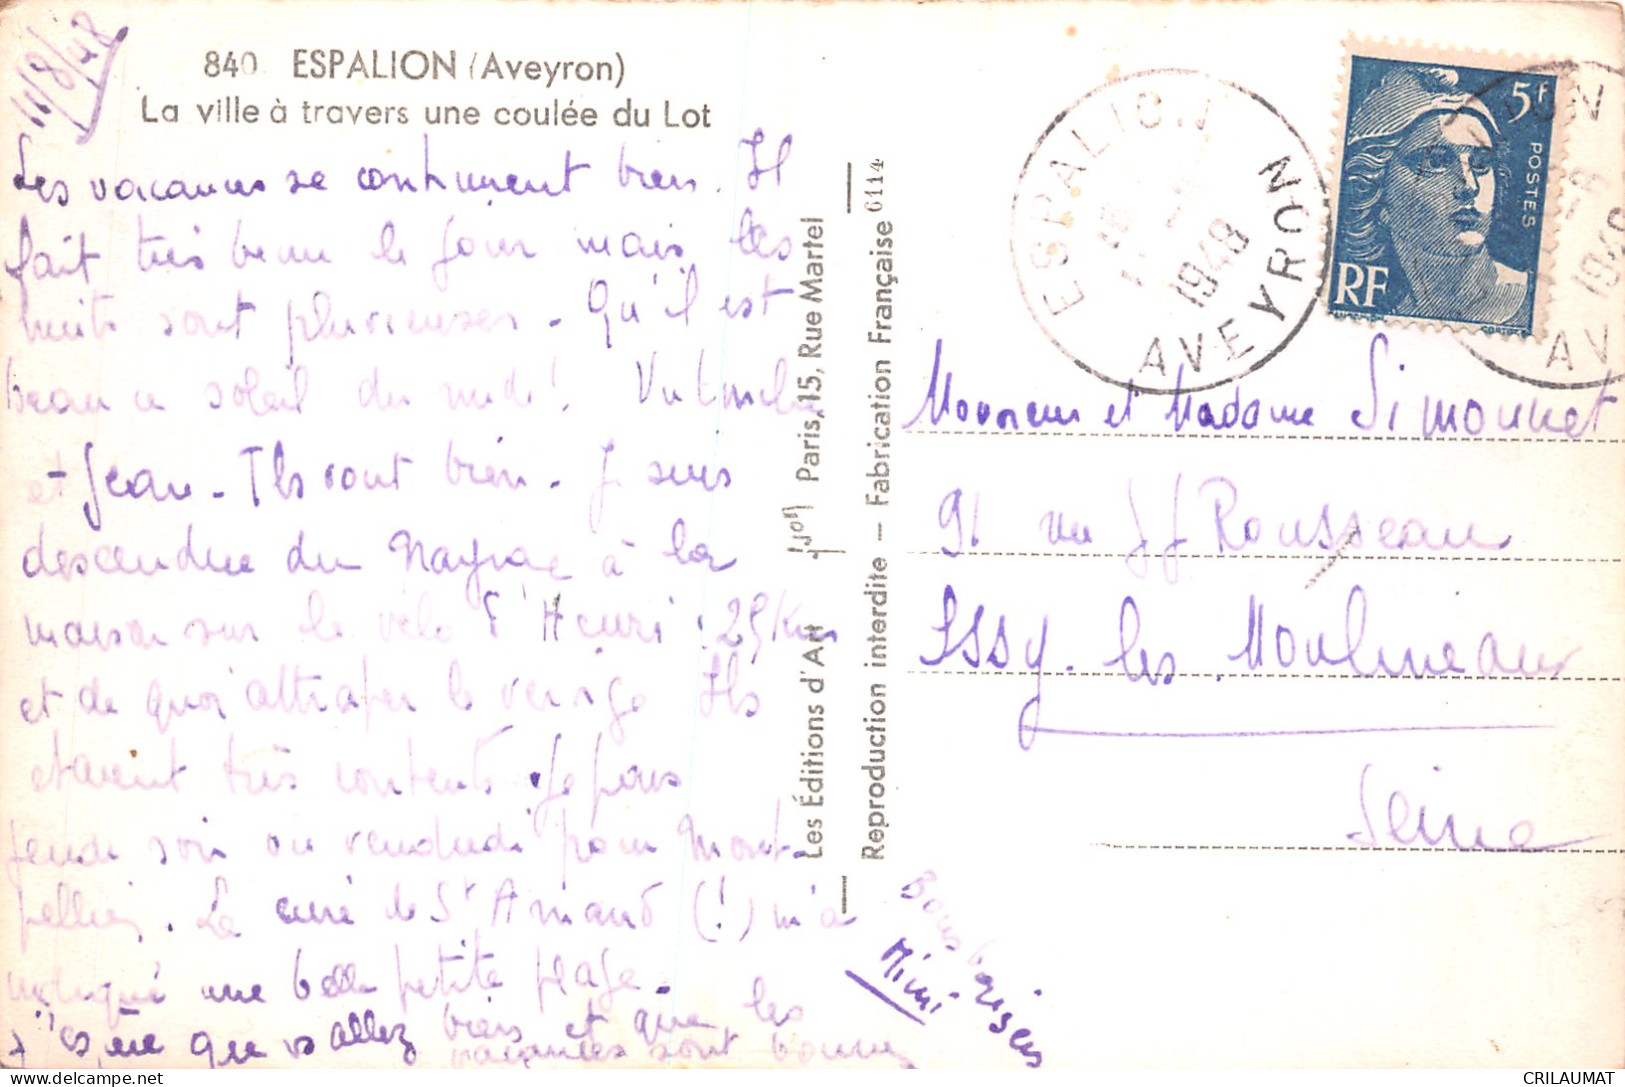 11/8/48
840. ESPALION (Aveyron)
La ville à travers une coulée du Lot
Les vacances se continuent bien. Il
fait très beau le jour mais les
nuits sont pluvieuses - Qu'il est
beau ce soleil du midi! Vu
et Jean - Ils sont bien - Je suis
descendue du Nayrac à la
maison sur le vélo d'Henri : 25 Km
et de quoi attraper le vertige Ils
étaient très contents. Je pars
jeudi soir ou vendredi pour Mont-
pellier. Le curé de St Amand (!) m'a
indiqué une belle petite plage.
J'espère que vs allez bien et que les
vacances sont bonnes
Bons baisers
Mimi
Les Éditions d'Art Yvon Paris, 15, Rue Martel
Reproduction interdite — Fabrication Française 6114
ESPALION
18
1948
AVEYRON
5F
POSTES
RF
1948
Monsieur et Madame Simonnet
91 rue JJ Rousseau
Issy-les Moulineaux
Seine
CRILAUMAT